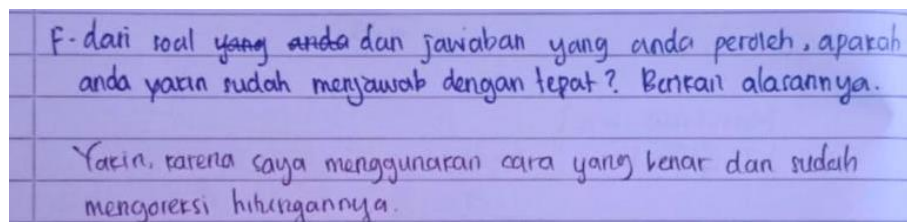 F. dari soal yang anda dan jawaban yang anda peroleh, apakah
anda yakin sudah menjawab dengan tepat? Berikan alasannya.
Yakin, karena saya menggunakan cara yang benar dan sudah
mengoreksi hitungannya.